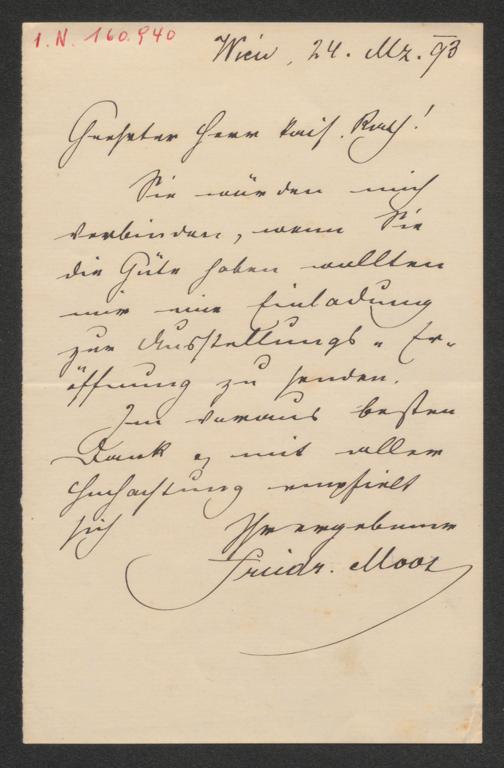 I. N. 160.940
Wien, 24. Mz. 93
Geehrter Herr kais. Rath!
Sie würden mich
verbinden, wenn Sie
die Güte haben wollten
mir eine Einladung
zur Ausstellungs-Er-
öffnung zu senden.
Im voraus besten
Dank & mit aller
Hochachtung empfielt
sich Ihr ergebener
Friedr. Moos